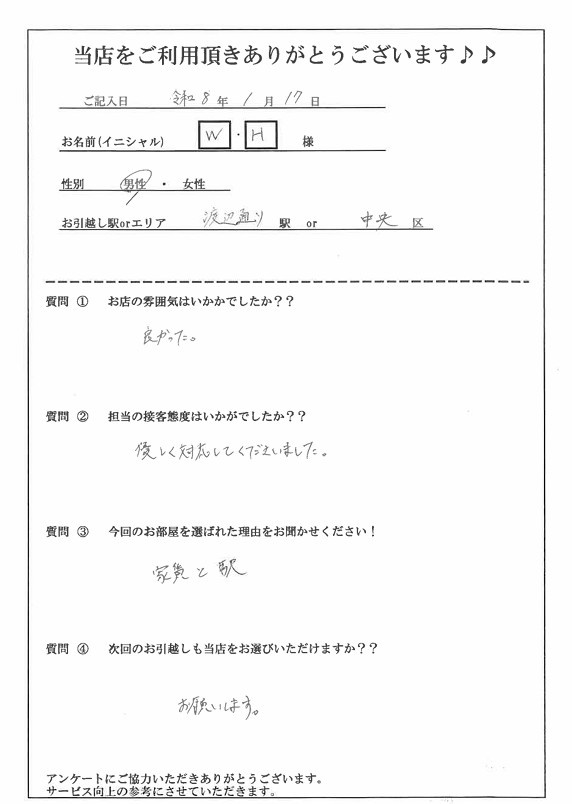 当店をご利用頂きありがとうございます♪♪
ご記入日 令和 8 年 1 月 17 日
お名前(イニシャル) W ・ H 様
性別 男性 ・ 女性
お引越し駅orエリア 渡辺通り 駅 or 中央 区
質問 ① お店の雰囲気はいかかでしたか??
良かった。
質問 ② 担当の接客態度はいかがでしたか??
優しく対応してくださいました。
質問 ③ 今回のお部屋を選ばれた理由をお聞かせください!
家賃と駅
質問 ④ 次回のお引越しも当店をお選びいただけますか??
お願いします。
アンケートにご協力いただきありがとうございます。
サービス向上の参考にさせていただきます。